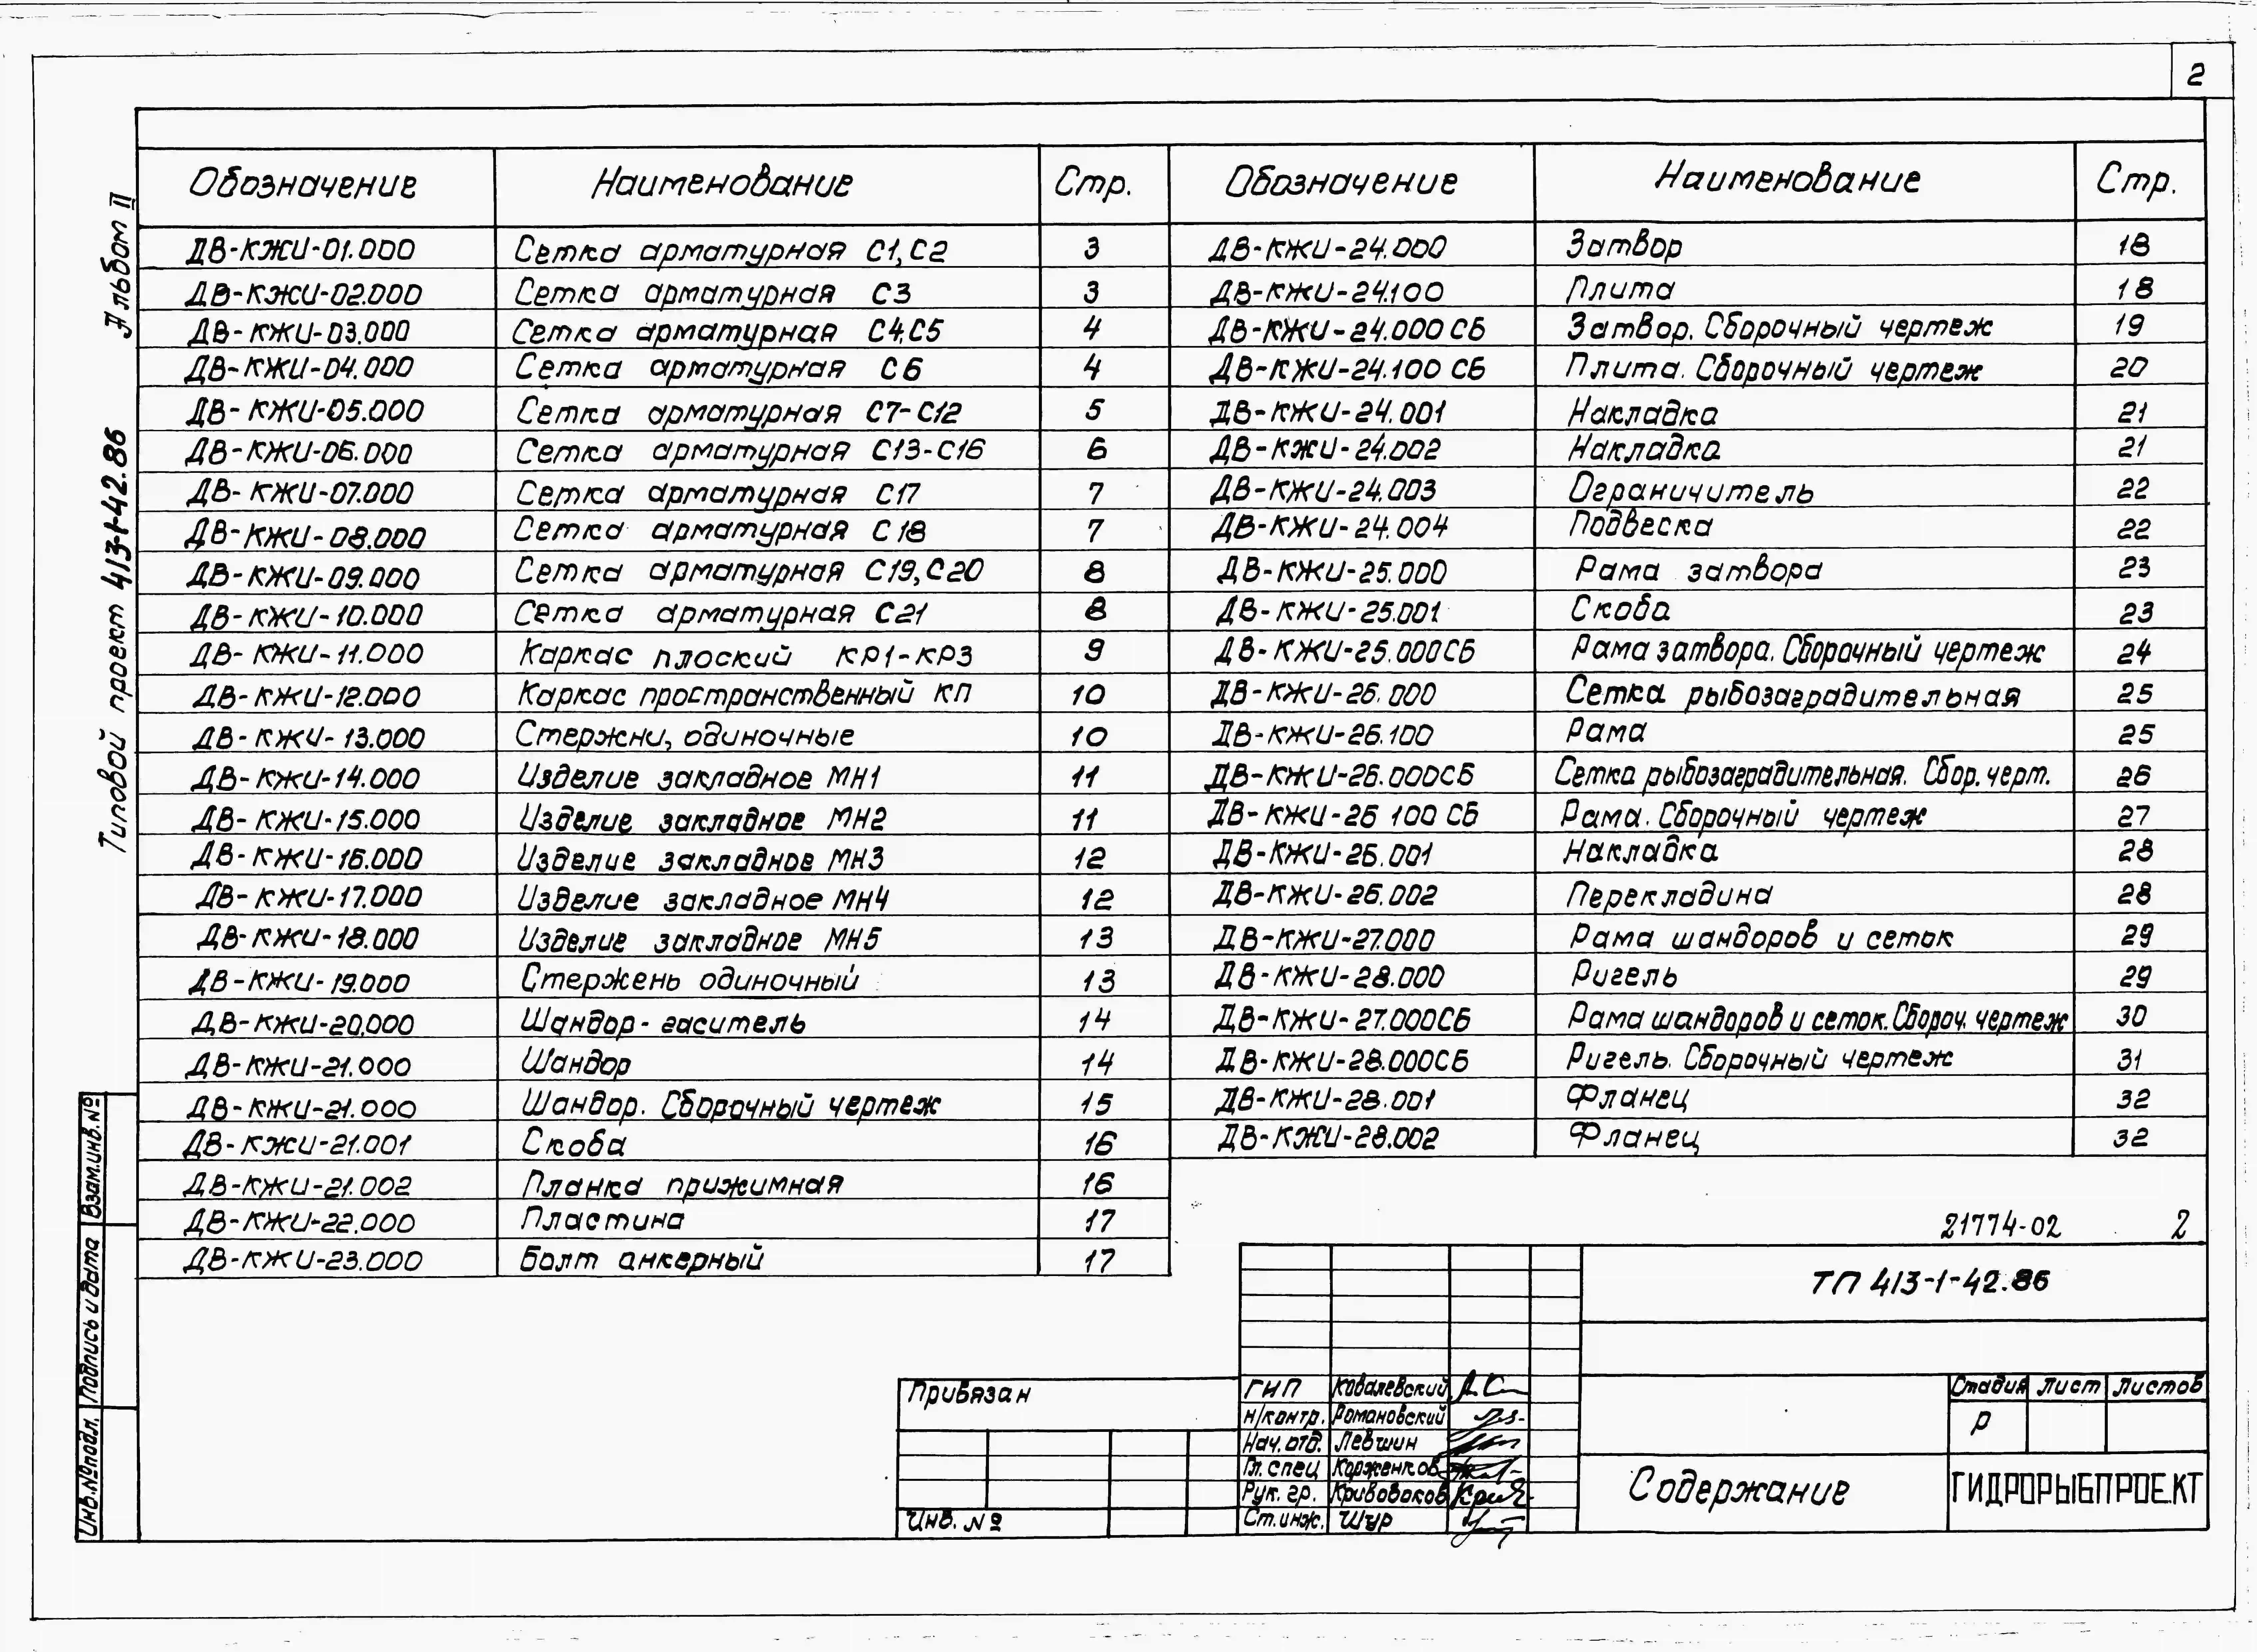 2
Альбом II
Типовой проект 413-1-42.86
Обозначение Наименование Стр.
ДВ-КЖИ-01.000 Сетка арматурная С1,С2 3
ДВ-КЖИ-02.000 Сетка арматурная С3 3
ДВ-КЖИ-03.000 Сетка арматурная С4,С5 4
ДВ-КЖИ-04.000 Сетка арматурная С6 4
ДВ-КЖИ-05.000 Сетка арматурная С7-С12 5
ДВ-КЖИ-06.000 Сетка арматурная С13-С16 6
ДВ-КЖИ-07.000 Сетка арматурная С17 7
ДВ-КЖИ-08.000 Сетка арматурная С18 7
ДВ-КЖИ-09.000 Сетка арматурная С19,С20 8
ДВ-КЖИ-10.000 Сетка арматурная С21 8
ДВ-КЖИ-11.000 Каркас плоский КР1-КР3 9
ДВ-КЖИ-12.000 Каркас пространственный КП 10
ДВ-КЖИ-13.000 Стержни, одиночные 10
ДВ-КЖИ-14.000 Изделие закладное МН1 11
ДВ-КЖИ-15.000 Изделие закладное МН2 11
ДВ-КЖИ-16.000 Изделие закладное МН3 12
ДВ-КЖИ-17.000 Изделие закладное МН4 12
ДВ-КЖИ-18.000 Изделие закладное МН5 13
ДВ-КЖИ-19.000 Стержень одиночный 13
ДВ-КЖИ-20.000 Шандор-гаситель 14
ДВ-КЖИ-21.000 Шандор 14
ДВ-КЖИ-21.000 Шандор. Сборочный чертеж 15
ДВ-КЖИ-21.001 Скоба 16
ДВ-КЖИ-21.002 Планка прижимная 16
ДВ-КЖИ-22.000 Пластина 17
ДВ-КЖИ-23.000 Болт анкерный 17
Обозначение Наименование Стр.
ДВ-КЖИ-24.000 Затвор 18
ДВ-КЖИ-24.100 Плита 18
ДВ-КЖИ-24.000 СБ Затвор. Сборочный чертеж 19
ДВ-КЖИ-24.100 СБ Плита. Сборочный чертеж 20
ДВ-КЖИ-24.001 Накладка 21
ДВ-КЖИ-24.002 Накладка 21
ДВ-КЖИ-24.003 Ограничитель 22
ДВ-КЖИ-24.004 Подвеска 22
ДВ-КЖИ-25.000 Рама затвора 23
ДВ-КЖИ-25.001 Скоба 23
ДВ-КЖИ-25.000СБ Рама затвора. Сборочный чертеж 24
ДВ-КЖИ-26.000 Сетка рыбозаградительная 25
ДВ-КЖИ-26.100 Рама 25
ДВ-КЖИ-26.000СБ Сетка рыбозаградительная. Сбор. черт. 26
ДВ-КЖИ-26 100 СБ Рама. Сборочный чертеж 27
ДВ-КЖИ-26.001 Накладка 28
ДВ-КЖИ-26.002 Перекладина 28
ДВ-КЖИ-27.000 Рама шандоров и сеток 29
ДВ-КЖИ-28.000 Ригель 29
ДВ-КЖИ-27.000СБ Рама шандоров и сеток. Сбороч. чертеж 30
ДВ-КЖИ-28.000СБ Ригель. Сборочный чертеж 31
ДВ-КЖИ-28.001 Фланец 32
ДВ-КЖИ-28.002 Фланец 32
21774-02 2
ТП 413-1-42.86
Привязан
Инв. №
ГИП Ковалевский
Н/контр. Романовский
Нач. отд. Левшин
Гл. спец Корженков
Рук. гр. Кривобоков
Ст. инж. Шур
Стадия Лист Листов
Р
Содержание
ГИДРОРЫБПРОЕКТ
Взам.инв.№
Подпись и дата
Инв.№подл.